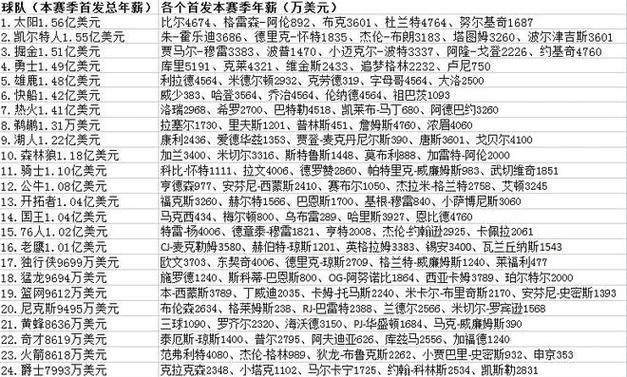 球队（本赛季首发总年薪） 各个首发本赛季年薪（万美元）
1. 太阳1.56亿美元 比尔4674、格雷森-阿伦892、布克3601、杜兰特4764、努尔基奇1687
2. 凯尔特人1.55亿美元 朱-霍乐迪3686、德里克-怀特1835、杰伦-布朗3183、塔图姆3260、波尔津吉斯3601
3. 掘金1.51亿美元 贾马尔-穆雷3383、波普1470、小迈克尔-波特3337、阿隆-戈登2226、约基奇4760
4. 勇士1.49亿美元 库里5191、克莱4321、维金斯2433、追梦格林2232、卢尼750
5. 雄鹿1.48亿美元 利拉德4564、米德尔顿2932、克劳德319、字母哥4564、大洛2500
6. 快船1.42亿美元 威少383、哈登3564、乔治4564、伦纳德4564、祖巴茨1093
7. 热火1.41亿美元 洛瑞2968、希罗2700、巴特勒4518、凯莱布-马丁680、阿德巴约3260
8. 鹈鹕1.31万美元 拉塞尔1730、里夫斯1201、普林斯451、詹姆斯4760、浓眉4060
9. 湖人1.22亿美元 康利2436、爱德华兹1353、贾登-麦克丹尼尔斯390、唐斯3601、戈贝尔4100
10. 森林狼1.18亿美元 加兰3400、米切尔3316、斯特鲁斯1448、莫布利888、加雷特-阿伦2000
11. 骑士1.10亿美元 科比-怀特1111、拉文4006、德罗赞2860、帕特里克-威廉姆斯983、武切维奇1851
12. 公牛1.08亿美元 亨德森977、安芬尼-西蒙斯2410、赛布尔1050、杰拉米-格兰特2758、艾顿3245
13. 开拓者1.04亿美元 福克斯3260、赫尔特1566、巴恩斯1700、基根-穆雷840、小萨博尼斯3060
14. 国王1.04亿美元 马克西434、梅尔顿800、乌布雷289、哈里斯3927、恩比德4760
15. 76人1.02亿美元 特雷-杨4006、德章泰-穆雷1821、亨特2008、杰伦-约翰逊2925、卡佩拉2061
16. 老鹰1.01亿美元 CJ-麦克勒姆3580、赫伯特-琼斯1201、英格拉姆3383、锡安3400、瓦兰丘纳斯1543
17. 独行侠9699万美元 欧文3703、东契奇4006、德里克-琼斯2709、格兰特-威廉姆斯1240、莱福利477
18. 猛龙9694万美元 施罗德1240、斯科蒂-巴恩斯800、OG-阿努诺比1864、西亚卡姆3789、珀尔特尔2000
19. 篮网9612万美元 本-西蒙斯3789、丁威迪2035、卡姆-托马斯2240、米卡尔-布里奇斯2170、安芬尼-史密斯1393
20. 尼克斯9495万美元 布伦森2634、格莱姆斯238、RJ-巴雷特2388、兰德尔2566、米切尔-罗宾逊1568
21. 黄蜂8636万美元 三球1090、罗齐尔2320、海沃德3150、PJ-华盛顿1684、马克-威廉姆斯390
22. 奇才8619万美元 泰厄斯-琼斯1400、普尔2795、阿夫迪亚626、库兹马2556、加福德1240
23. 火箭8618万美元 范弗利特4080、杰伦-格林989、狄龙-布鲁克斯2262、小贾巴里-史密斯932、申京353
24. 爵士7993万美元 克拉克森2348、小塔克1106、马尔卡宁1725、约翰-科林斯2534、凯斯勒2831